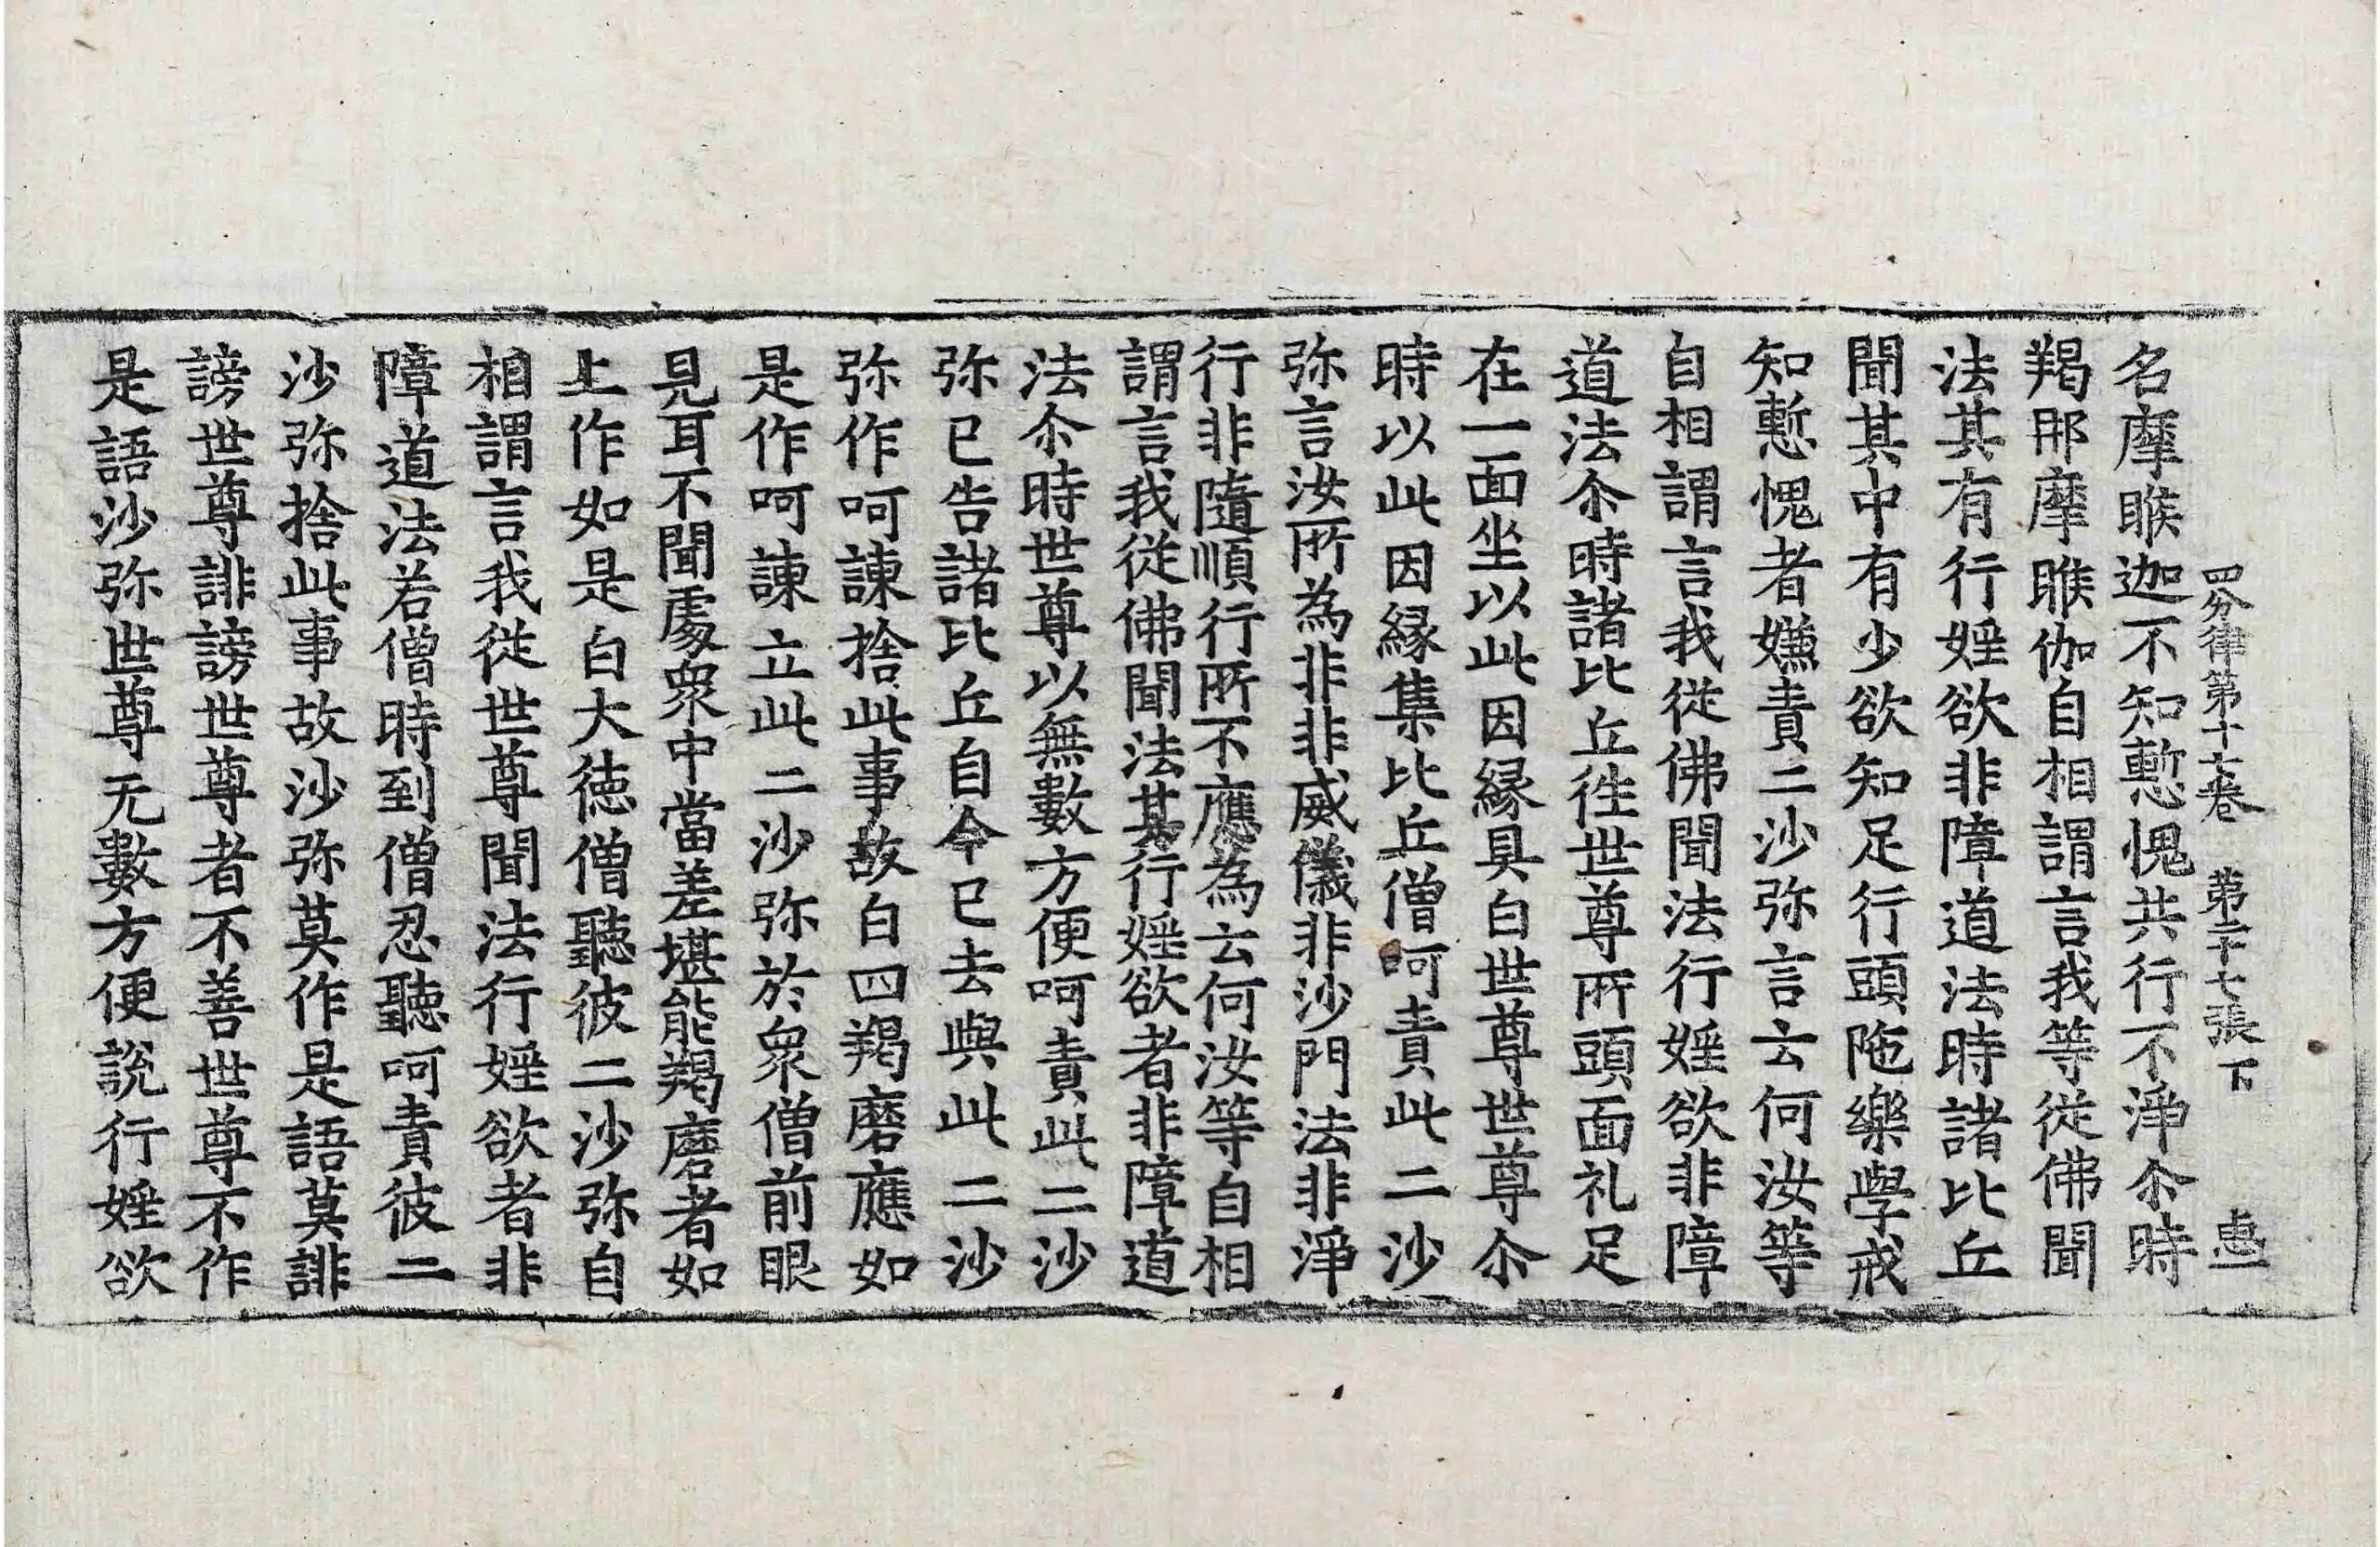 四分律第十七卷 第二十七張 下
名摩睺迦不知慙愧共行不淨尒時
羯那摩睺伽自相謂言我等從佛聞
法其有行婬欲非障道法時諸比丘
聞其中有少欲知足行頭陁樂學戒
知慙愧者嫌責二沙弥言云何汝等
自相謂言我從佛聞法行婬欲非障
道法尒時諸比丘徃世尊所頭面礼足
在一面坐以此因緣具白世尊世尊尒
時以此因緣集比丘僧呵責此二沙
弥言汝所為非非威儀非沙門法非淨
行非隨順行所不應為云何汝等自相
謂言我從佛聞法其行婬欲者非障道
法尒時世尊以無數方便呵責此二沙
弥已告諸比丘自今已去與此二沙
弥作呵諫捨此事故白四羯磨應如
是作呵諫立此二沙弥於眾僧前眼
見耳不聞處眾中當差堪能羯磨者如
上作如是白大德僧聽彼二沙弥自
相謂言我從世尊聞法行婬欲者非
障道法若僧時到僧忍聽呵責彼二
沙弥捨此事故沙弥莫作是語莫誹
謗世尊誹謗世尊者不善世尊不作
是語沙弥世尊无數方便說行婬欲